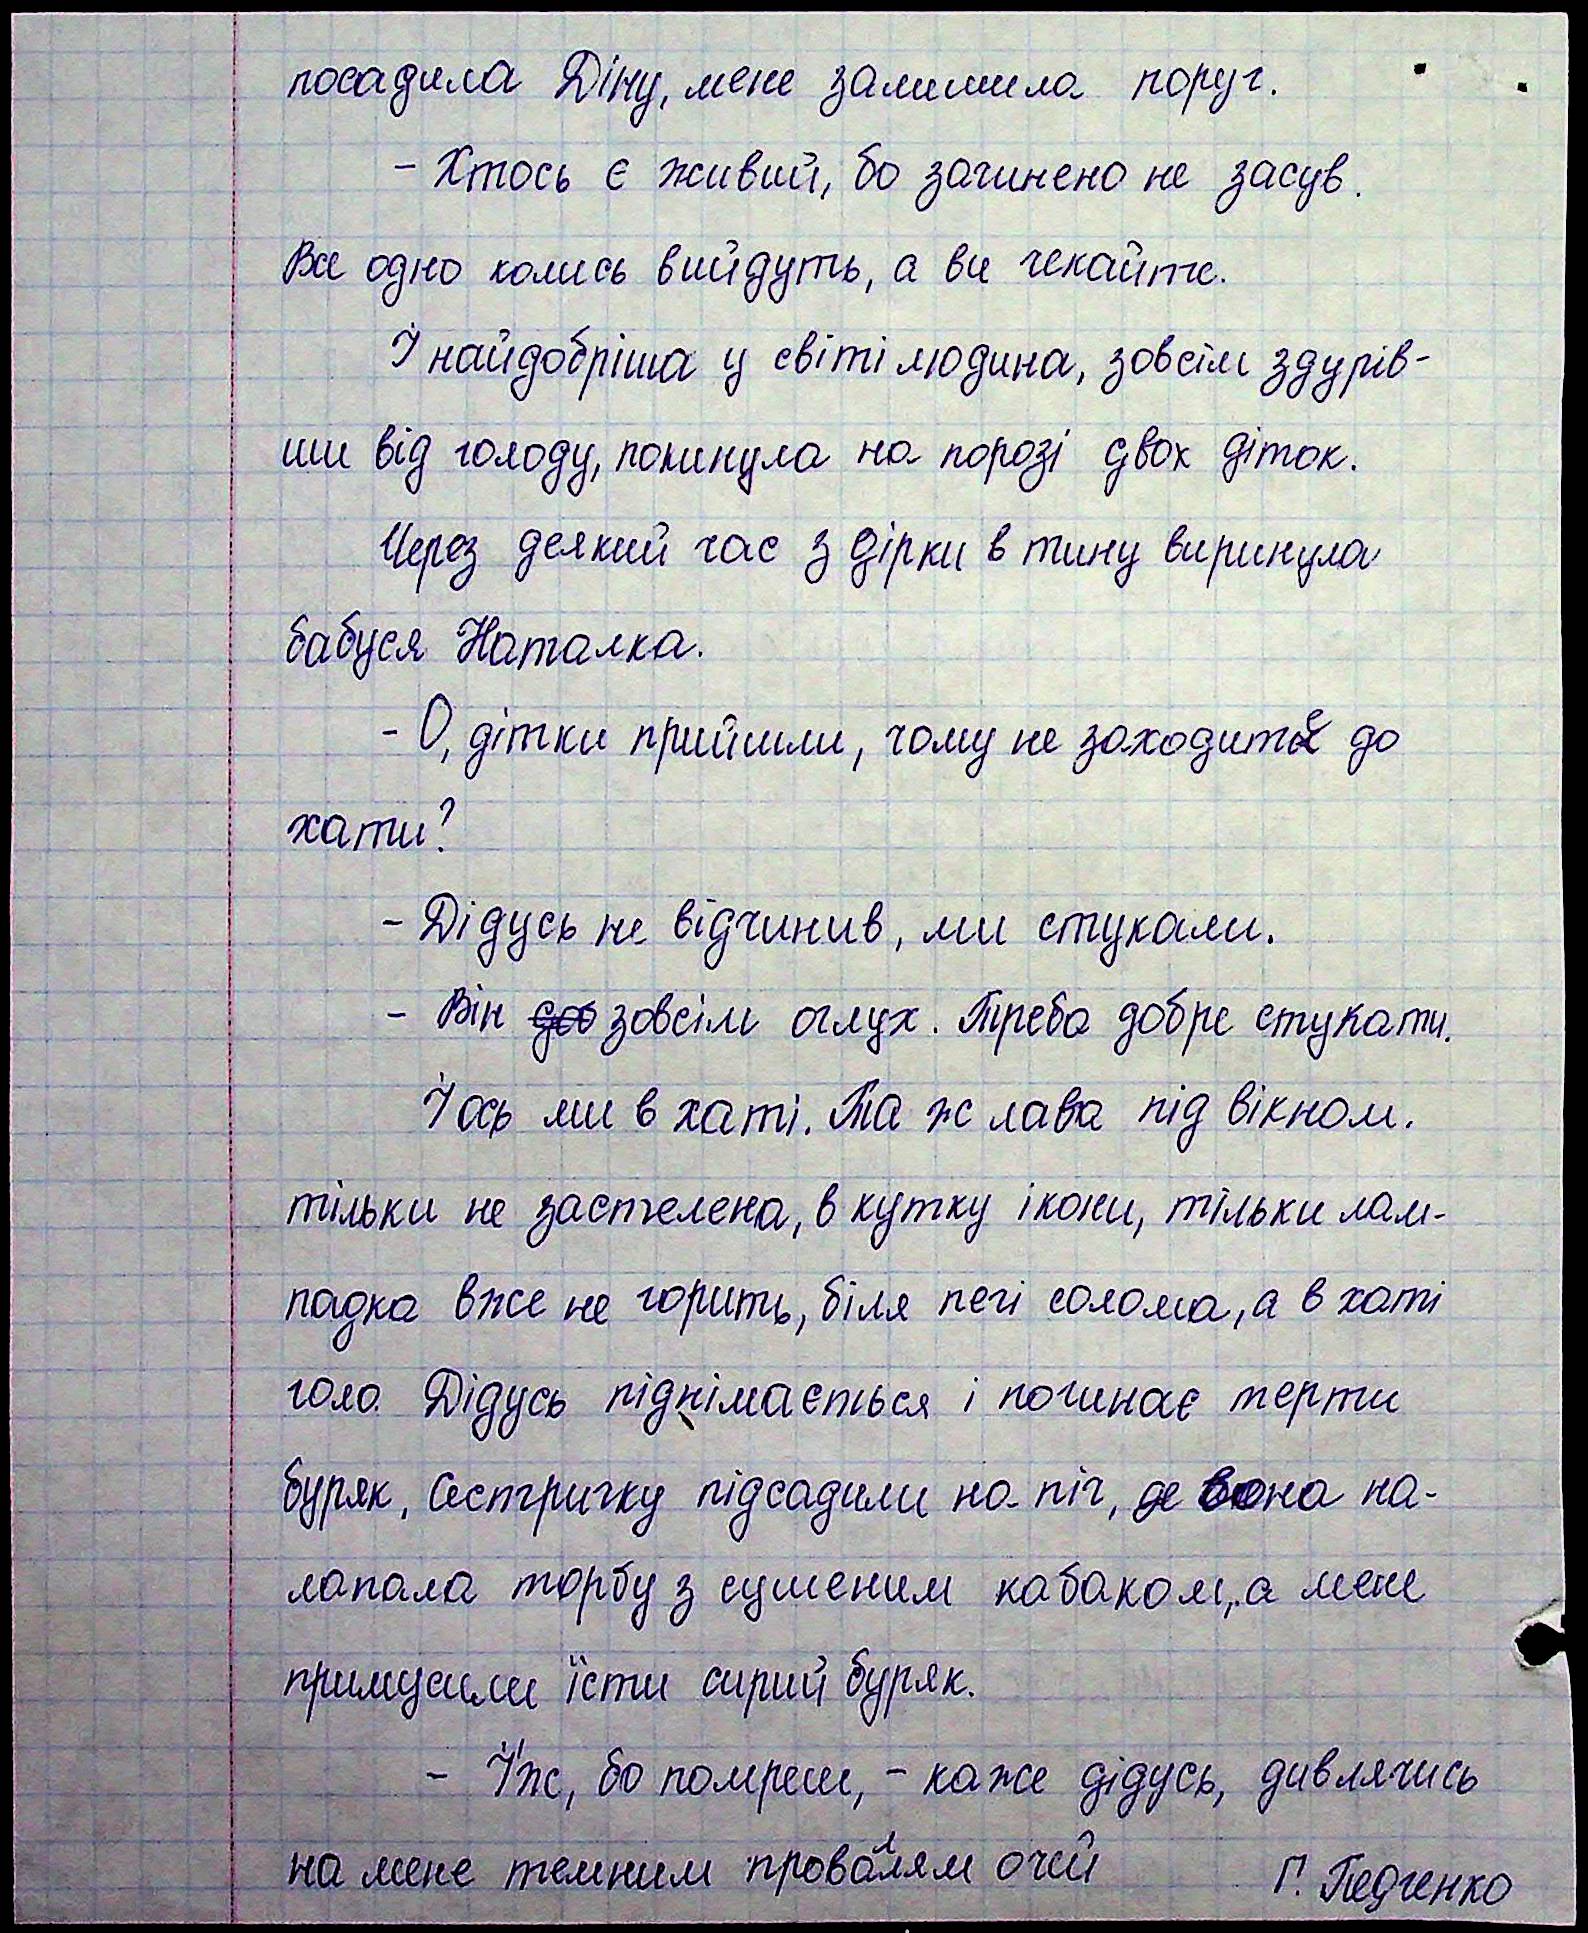 посадила Діну, мене залишила поруч.
- Хтось є живий, бо зачинено не засув.
Все одно колись вийдуть, а ви чекайте.
І найдобріша у світі людина, зовсім здурів-
ши від голоду, покинула на порозі двох діток.
Через деякий час з дірки в тину виринула
бабуся Наталка.
- О, дітки прийшли, чому не заходите до
хати?
- Дідусь не відчинив, ми стукали.
- Він зовсім оглух. Треба добре стукати.
І ось ми в хаті. Та ж лава під вікном.
тільки не застелена, в кутку ікони, тільки лам-
падка вже не горить, біля печі солома, а в хаті
голо. Дідусь піднімається і починає терти
буряк, Сестричку підсадили на піч, де вона на-
лапала торбу з сушеним кабаком, а мене
примусили їсти сирий буряк.
- Їж, бо помреш, - каже дідусь, дивлячись
на мене темним провалям очей
Г. Педченко